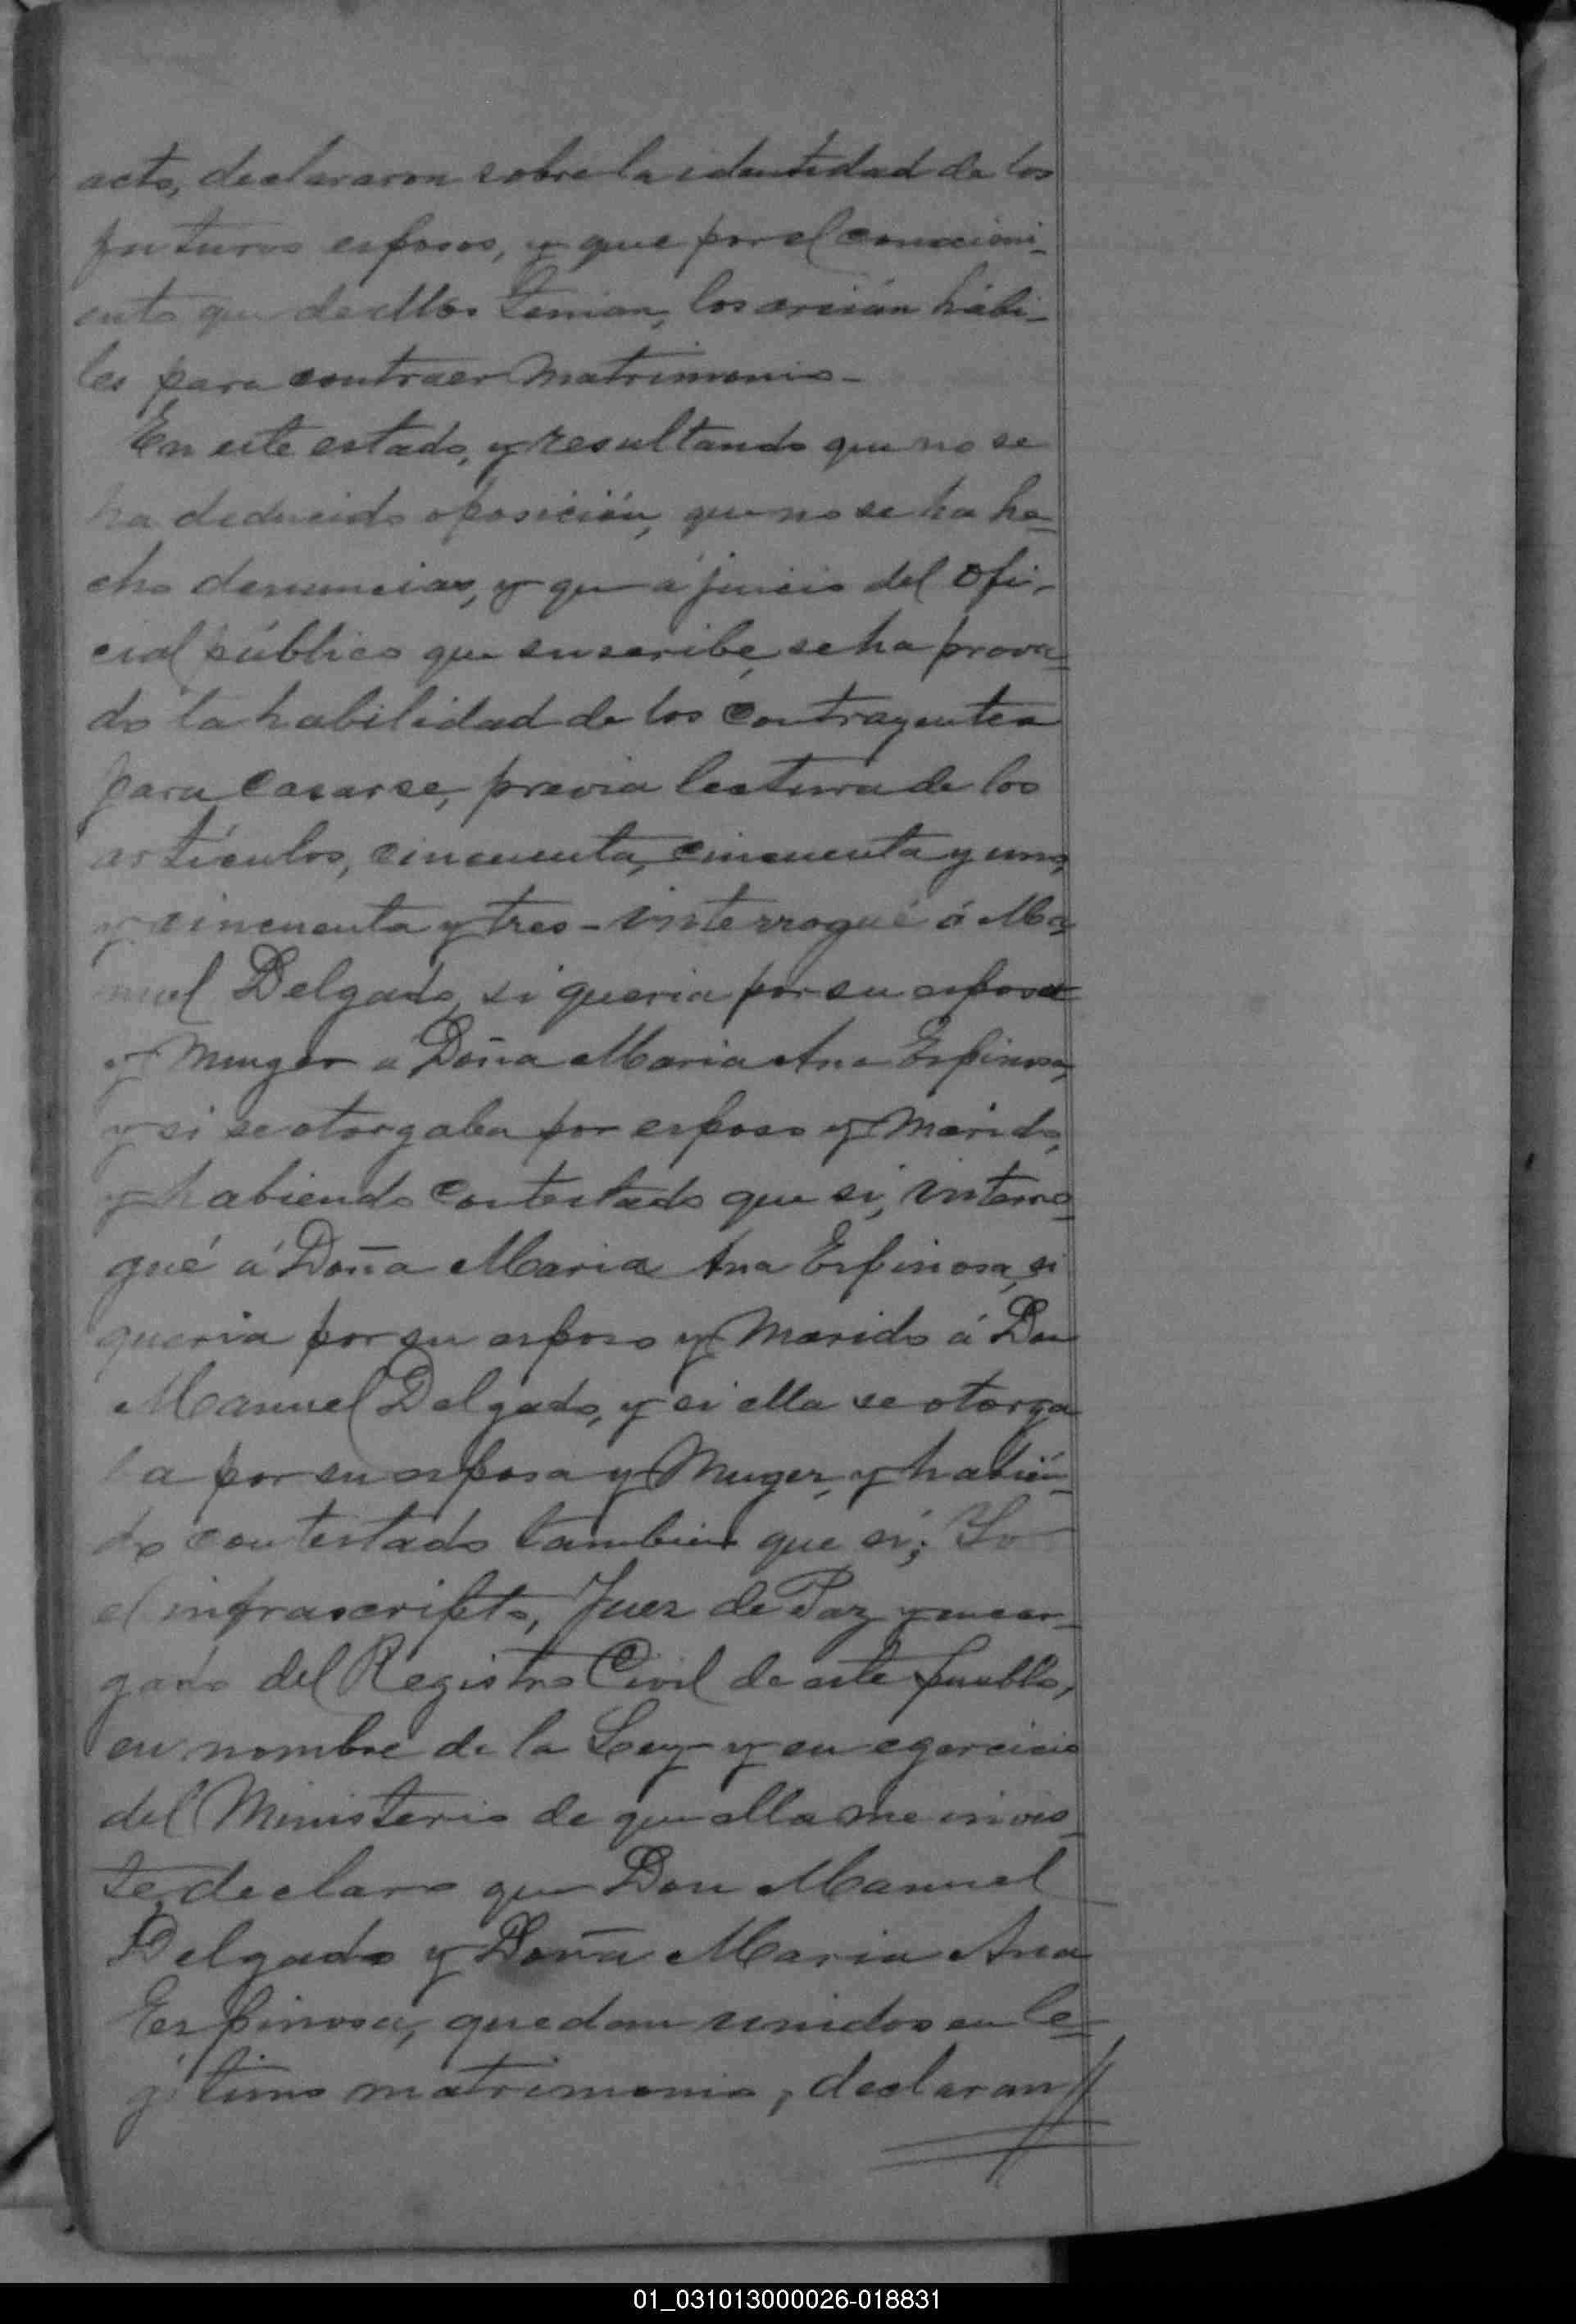 acto, declararon sobre la identidad de los
futuros esposos, y que por el conocimi-
ento que de ellos tenian, los creián hábi-
les para contraer Matrimonio-
En este estado, y resultando que no se
ha deducido oposición, que no se ha he-
cho denuncias, y que á juicio del Ofi-
cial público que suscribe, se ha prova-
do la habilidad de los Contrayentes
para Casarse, previa lectura de los
artículos, cincuenta, cincuenta y uno,
y cincuenta y tres - interrogué á Ma-
nuel Delgado, si queria por su esposa
y Muger a Doña Maria Ana Espinosa,
y si se otorgaba por esposo y Marido,
y habiendo Contestado que si, interro-
gué á Doña Maria Ana Espinosa, si
queria por su esposo y Marido á Don
Manuel Delgado, y si ella se otorga
ba por su esposa y Muger, y habién-
do contestado tambien que si; Yo
el infrascripto, Juez de Paz y encar-
gado del Registro Civil de este pueblo,
en nombre de la Ley y en egercicio
del Ministerio de que ella me invis-
te, declaro que Don Manuel
Delgado y Doña Maria Ana
Espinosa, quedan unidos en le-
gitimo matrimonio, declaran
01_031013000026-018831